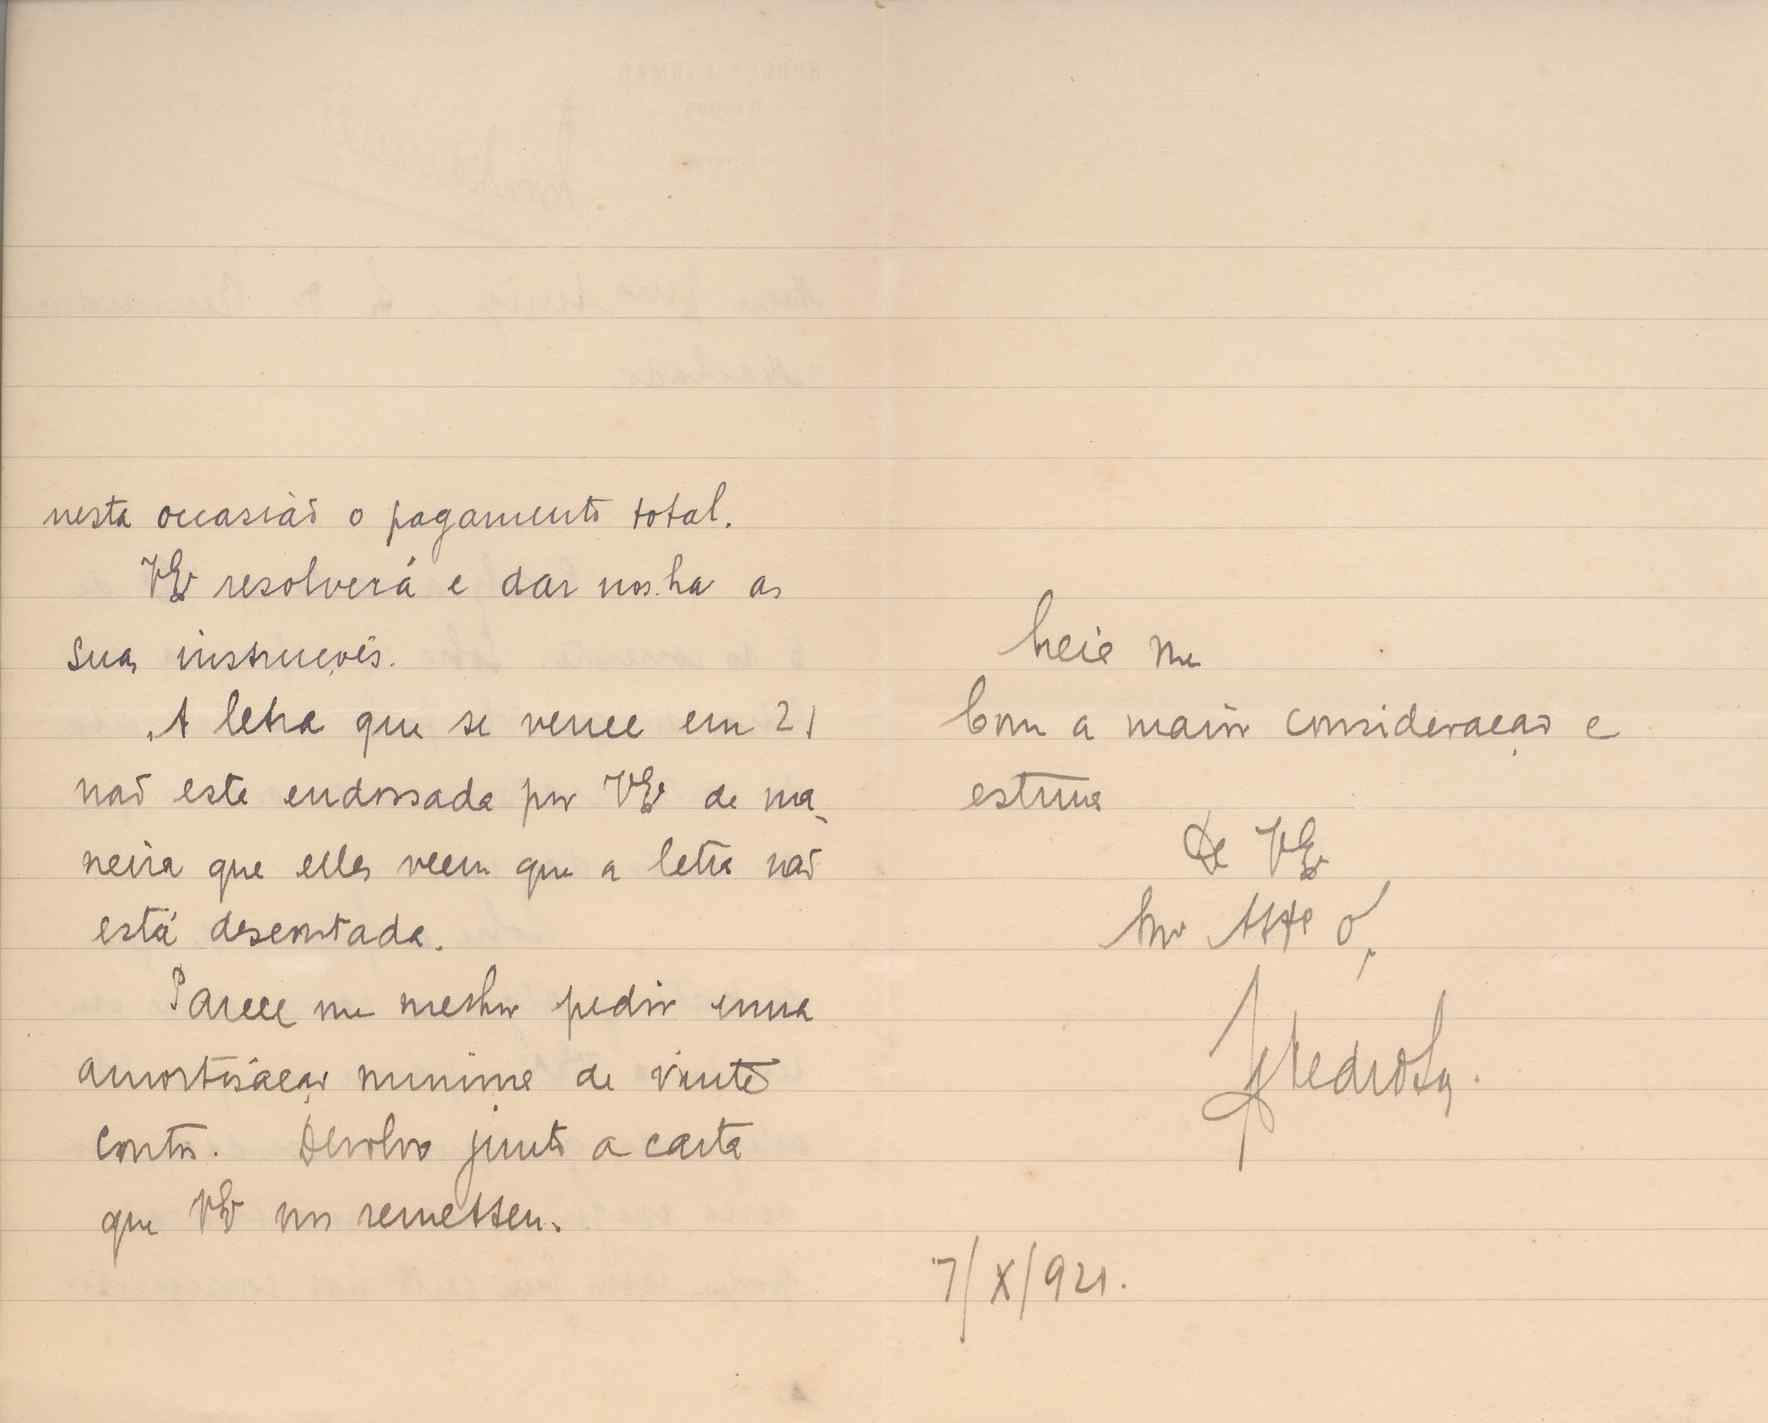 nesta occasião o pagamento total.
VEx resolverá e dar nos-ha as
suas instrucções.
A letra que se vence em 21
não esta endossada por VEx de ma-
neira que elles veem que a letra não
está descontada.
Parece me melhor pedir uma
amortisação minima de vinte
contos. Devolvo junto a carta
que VEx nos remetteu.
Creia me
Com a maior consideração e
estima
De VEx
Att
Pedrosa.
7/X/921.